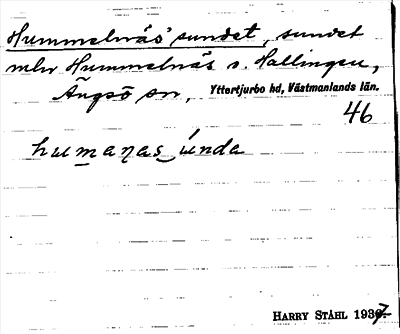 Hummelnäs'sundet, sundet
mlw Hummelnäs o. Hallingen,
Ängsö sn, Yttertjurbo hd, Västmanlands län.
46
humanas únda
HARRY STÅHL 1937.